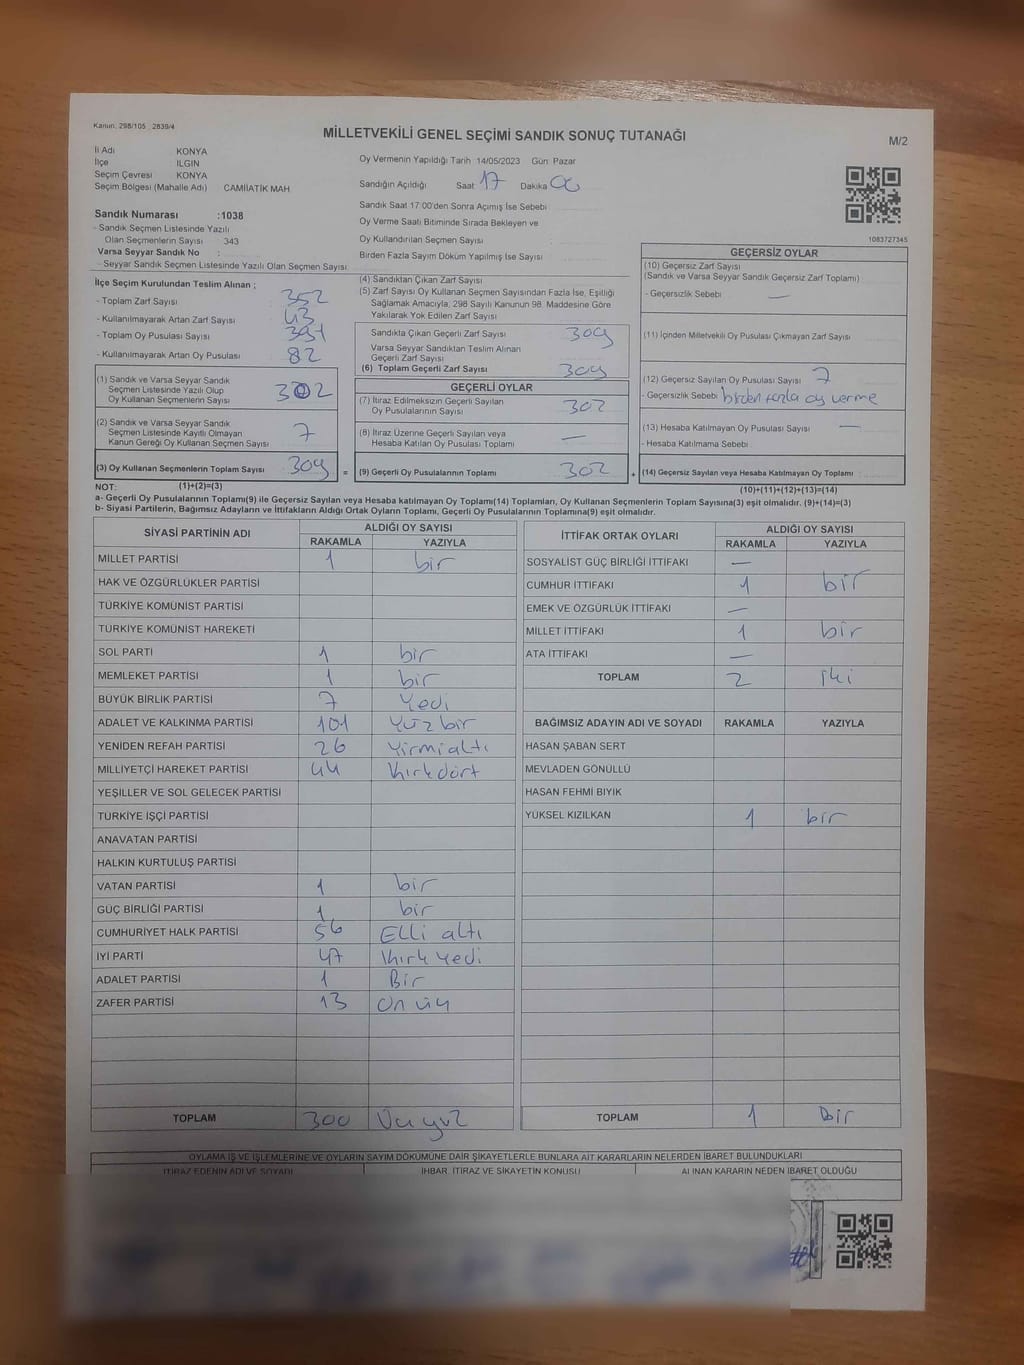 Kanun: 298/105 _2839/4
MİLLETVEKİLİ GENEL SEÇİMİ SANDIK SONUÇ TUTANAĞI
M/2
İl Adı KONYA
İlçe ILGIN
Seçim Çevresi KONYA
Seçim Bölgesi (Mahalle Adı) CAMİİATİK MAH
Sandık Numarası :1038
- Sandık Seçmen Listesinde Yazılı
Olan Seçmenlerin Sayısı 343
Varsa Seyyar Sandık No :
- Seyyar Sandık Seçmen Listesinde Yazılı Olan Seçmen Sayısı
Oy Vermenin Yapıldığı Tarih 14/05/2023 Gün Pazar
Sandığın Açıldığı Saat 17 Dakika 00
Sandık Saat 17:00'den Sonra Açımış İse Sebebi
Oy Verme Saati Bitiminde Sırada Bekleyen ve
Oy Kullandırılan Seçmen Sayısı :
Birden Fazla Sayım Döküm Yapılmış İse Sayısı
1083727345
İlçe Seçim Kurulundan Teslim Alınan ;
- Toplam Zarf Sayısı 352
- Kullanılmayarak Artan Zarf Sayısı 43
- Toplam Oy Pusulası Sayısı 391
- Kullanılmayarak Artan Oy Pusulası 82
(1) Sandık ve Varsa Seyyar Sandık
Seçmen Listesinde Yazılı Olup
Oy Kullanan Seçmenlerin Sayısı 302
(2) Sandık ve Varsa Seyyar Sandık
Seçmen Listesinde Kayıtlı Olmayan
Kanun Gereği Oy Kullanan Seçmen Sayısı 7
(3) Oy Kullanan Seçmenlerin Toplam Sayısı 309 =
(4) Sandıktan Çıkan Zarf Sayısı
(5) Zarf Sayısı Oy Kullanan Seçmen Sayısından Fazla İse, Eşitliği
Sağlamak Amacıyla, 298 Sayılı Kanunun 98. Maddesine Göre
Yakılarak Yok Edilen Zarf Sayısı
Sandıkta Çıkan Geçerli Zarf Sayısı 309
Varsa Seyyar Sandıktan Teslim Alınan
Geçerli Zarf Sayısı
(6) Toplam Geçerli Zarf Sayısı 309
GEÇERLİ OYLAR
(7) İtiraz Edilmeksizin Geçerli Sayılan
Oy Pusulalarının Sayısı 302
(8) İtiraz Üzerine Geçerli Sayılan veya
Hesaba Katılan Oy Pusulası Toplamı —
(9) Geçerli Oy Pusulalarının Toplamı 302 +
GEÇERSİZ OYLAR
(10) Geçersiz Zarf Sayısı
(Sandık ve Varsa Seyyar Sandık Geçersiz Zarf Toplamı)
- Geçersizlik Sebebi —
(11) İçinden Milletvekili Oy Pusulası Çıkmayan Zarf Sayısı
(12) Geçersiz Sayılan Oy Pusulası Sayısı 7
- Geçersizlik Sebebi birden fazla oy verme
(13) Hesaba Katılmayan Oy Pusulası Sayısı —
- Hesaba Katılmama Sebebi :
(14) Geçersiz Sayılan veya Hesaba Katılmayan Oy Toplamı
NOT: (1)+(2)=(3) (10)+(11)+(12)+(13)=(14)
a- Geçerli Oy Pusulalarının Toplamı(9) ile Geçersiz Sayılan veya Hesaba katılmayan Oy Toplamı(14) Toplamları, Oy Kullanan Seçmenlerin Toplam Sayısına(3) eşit olmalıdır. (9)+(14)=(3)
b- Siyasi Partilerin, Bağımsız Adayların ve İttifakların Aldığı Oyların Toplamı, Geçerli Oy Pusulalarının Toplamına(9) eşit olmalıdır.
SİYASİ PARTİNİN ADI ALDIĞI OY SAYISI
RAKAMLA YAZIYLA
MİLLET PARTİSİ 1 bir
HAK VE ÖZGÜRLÜKLER PARTİSİ
TÜRKİYE KOMÜNİST PARTİSİ
TÜRKİYE KOMÜNİST HAREKETİ
SOL PARTİ 1 bir
MEMLEKET PARTİSİ 1 bir
BÜYÜK BİRLİK PARTİSİ 7 Yedi
ADALET VE KALKINMA PARTİSİ 101 Yüz bir
YENİDEN REFAH PARTİSİ 26 Yirmialtı
MİLLİYETÇİ HAREKET PARTİSİ 44 Kırkdört
YEŞİLLER VE SOL GELECEK PARTİSİ
TÜRKİYE İŞÇİ PARTİSİ
ANAVATAN PARTİSİ
HALKIN KURTULUŞ PARTİSİ
VATAN PARTİSİ 1 bir
GÜÇ BİRLİĞİ PARTİSİ 1 bir
CUMHURİYET HALK PARTİSİ 56 Elli altı
İYİ PARTİ 47 Kırk yedi
ADALET PARTİSİ 1 Bir
ZAFER PARTİSİ 13 On üç
TOPLAM 300 Üçyüz
İTTİFAK ORTAK OYLARI ALDIĞI OY SAYISI
RAKAMLA YAZIYLA
SOSYALİST GÜÇ BİRLİĞİ İTTİFAKI —
CUMHUR İTTİFAKI 1 bir
EMEK VE ÖZGÜRLÜK İTTİFAKI —
MİLLET İTTİFAKI 1 bir
ATA İTTİFAKI —
TOPLAM 2 iki
BAĞIMSIZ ADAYIN ADI VE SOYADI RAKAMLA YAZIYLA
HASAN ŞABAN SERT
MEVLADEN GÖNÜLLÜ
HASAN FEHMİ BIYIK
YÜKSEL KIZILKAN 1 bir
TOPLAM 1 bir
OYLAMA İŞ VE İŞLEMLERİNE VE OYLARIN SAYIM DÖKÜMÜNE DAİR ŞİKAYETLERLE BUNLARA AİT KARARLARIN NELERDEN İBARET BULUNDUKLARI
İTİRAZ EDENİN ADI VE SOYADI İHBAR, İTİRAZ VE ŞİKAYETİN KONUSU ALINAN KARARIN NEDEN İBARET OLDUĞU